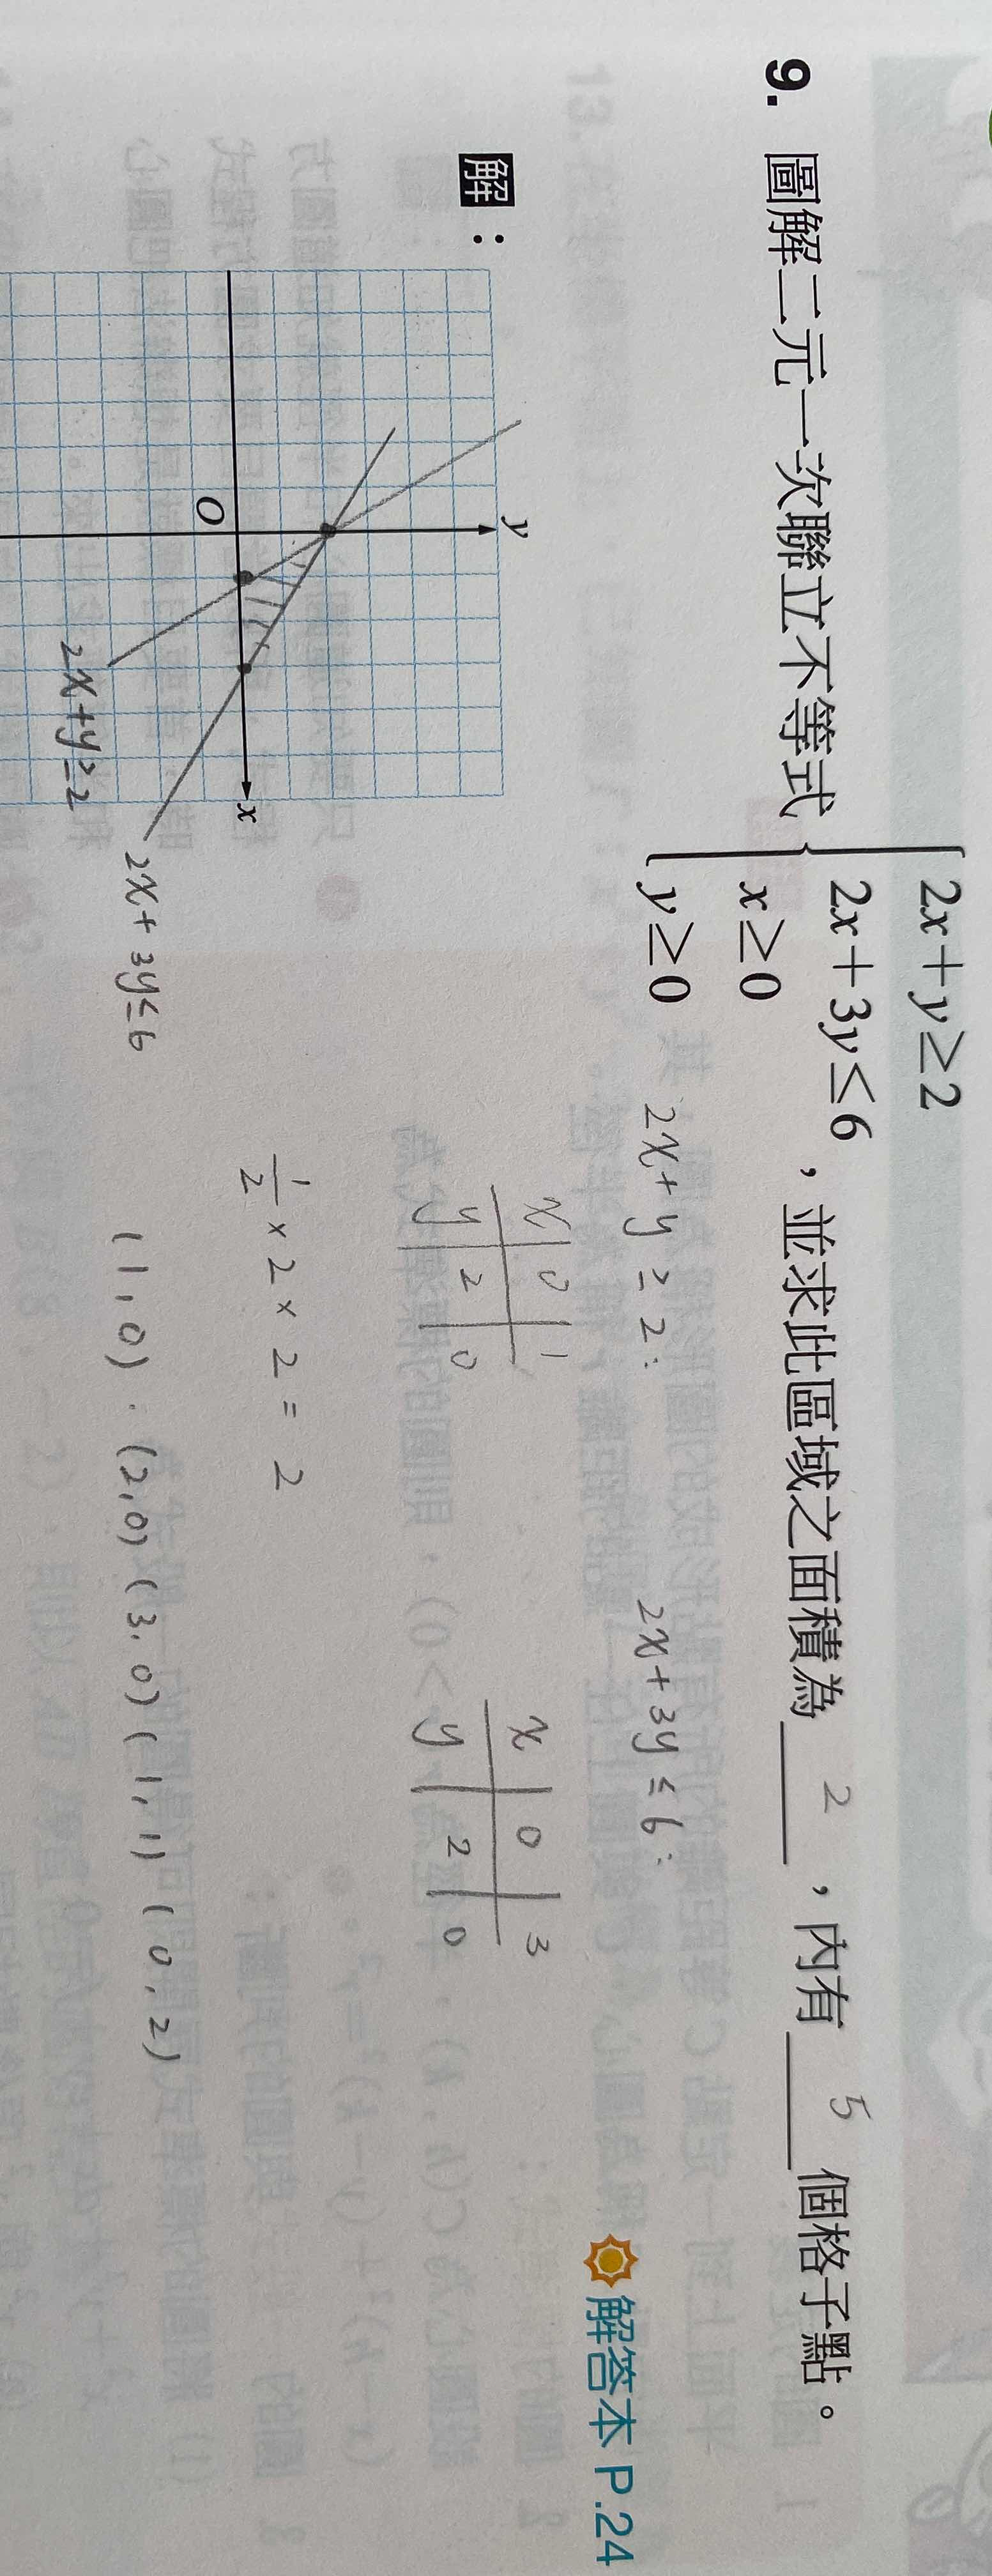 9. 圖解二元一次聯立不等式 { 2x+y≥2
2x+3y≤6
x≥0
y≥0 ,並求此區域之面積為 2 ,內有 5 個格子點。
解答本 P.24
解:
y
O
x
2x+y≥2
2x+3y≤6
2x+y≥2:
x 0 1
y 2 0
2x+3y≤6:
x 0 3
y 2 0
1/2 × 2 × 2 = 2
(1,0) (2,0) (3,0) (1,1) (0,2)